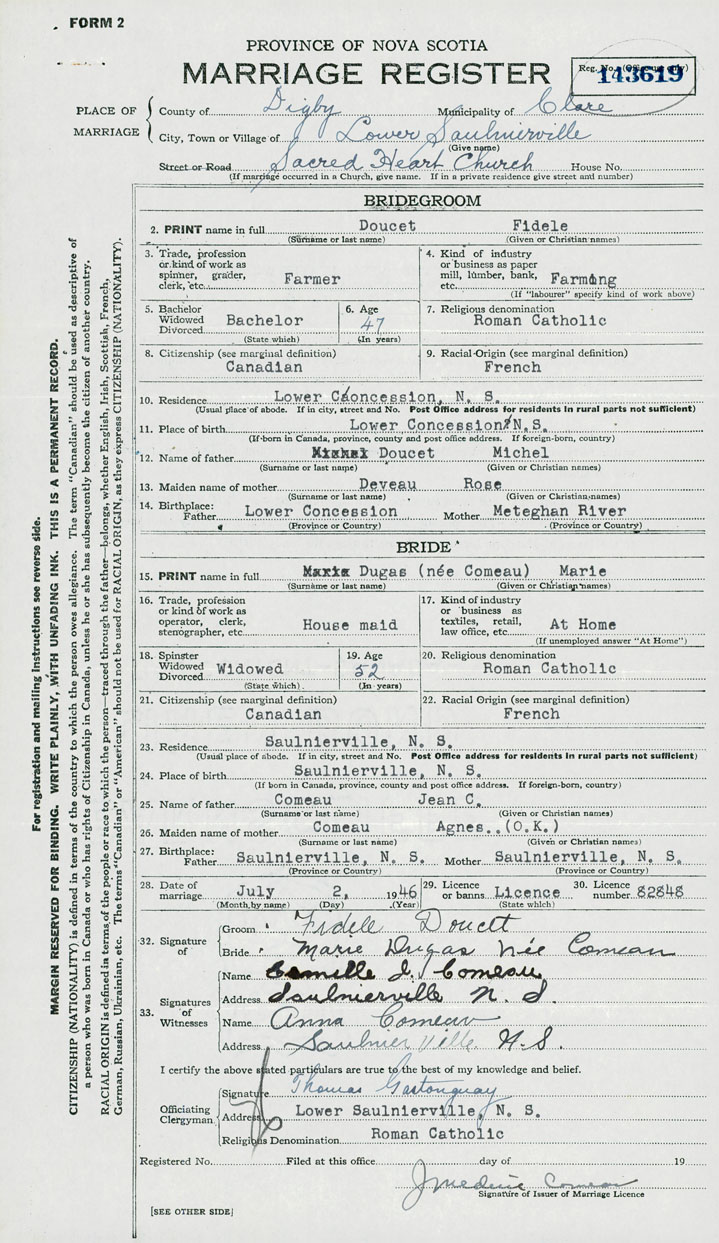 FORM 2
PROVINCE OF NOVA SCOTIA
MARRIAGE REGISTER
Reg. No. (Office use only)
143619
PLACE OF MARRIAGE
County of Digby Municipality of Clare
City, Town or Village of Lower Saulnierville
(Give name)
Street or Road Sacred Heart Church House No.
(If marriage occurred in a Church, give name. If in a private residence give street and number)
BRIDEGROOM
2. PRINT name in full Doucet Fidele
(Surname or last name) (Given or Christian names)
3. Trade, profession or kind of work as spinner, grader, clerk, etc. Farmer
4. Kind of industry or business as paper mill, lumber, bank, etc. Farming
(If "labourer" specify kind of work above)
5. Bachelor Widowed Divorced Bachelor
(State which)
6. Age 47
(In years)
7. Religious denomination
Roman Catholic
8. Citizenship (see marginal definition)
Canadian
9. Racial Origin (see marginal definition)
French
10. Residence Lower Concession, N. S.
(Usual place of abode. If in city, street and No. Post Office address for residents in rural parts not sufficient)
11. Place of birth Lower Concession N.S.
(If born in Canada, province, county and post office address. If foreign-born, country)
12. Name of father Doucet Michel
(Surname or last name) (Given or Christian names)
13. Maiden name of mother Deveau Rose
(Surname or last name) (Given or Christian names)
14. Birthplace: Father Lower Concession Mother Meteghan River
(Province or Country) (Province or Country)
BRIDE
15. PRINT name in full Maria Dugas (née Comeau) Marie
(Surname or last name) (Given or Christian names)
16. Trade, profession or kind of work as operator, clerk, stenographer, etc. House maid
17. Kind of industry or business as textiles, retail, law office, etc. At Home
(If unemployed answer "At Home")
18. Spinster Widowed Divorced Widowed
(State which)
19. Age 52
(In years)
20. Religious denomination
Roman Catholic
21. Citizenship (see marginal definition)
Canadian
22. Racial Origin (see marginal definition)
French
23. Residence Saulnierville, N. S.
(Usual place of abode. If in city, street and No. Post Office address for residents in rural parts not sufficient)
24. Place of birth Saulnierville, N. S.
(If born in Canada, province, county and post office address. If foreign-born, country)
25. Name of father Comeau Jean C.
(Surname or last name) (Given or Christian names)
26. Maiden name of mother Comeau Agnes. (O.K.)
(Surname or last name) (Given or Christian names)
27. Birthplace: Father Saulnierville, N. S. Mother Saulnierville, N. S.
(Province or Country) (Province or Country)
28. Date of marriage July 2, 1946
(Month by name) (Day) (Year)
29. Licence or banns Licence
(State which)
30. Licence number 82848
32. Signature of
Groom Fidele Doucet
Bride Marie Dugas née Comeau
33. Signatures of Witnesses
Name Camille J. Comeau
Address Saulnierville N. S.
Name Anna Comeau
Address Saulnierville N.S.
I certify the above stated particulars are true to the best of my knowledge and belief.
Officiating Clergyman
Signature Thomas Gastonguay
Address Lower Saulnierville, N. S.
Religious Denomination Roman Catholic
Registered No. Filed at this office day of 19
Comeau
Signature of Issuer of Marriage Licence
[SEE OTHER SIDE]
For registration and mailing instructions see reverse side.
MARGIN RESERVED FOR BINDING. WRITE PLAINLY, WITH UNFADING INK. THIS IS A PERMANENT RECORD.
CITIZENSHIP (NATIONALITY) is defined in terms of the country to which the person owes allegiance. The term "Canadian" should be used as descriptive of
a person who was born in Canada or who has rights of Citizenship in Canada, unless he or she has subsequently become the citizen of another country.
RACIAL ORIGIN is defined in terms of the people or race to which the person—traced through the father—belongs, whether English, Irish, Scottish, French,
German, Russian, Ukrainian, etc. The terms "Canadian" or "American" should not be used for RACIAL ORIGIN, as they express CITIZENSHIP (NATIONALITY).